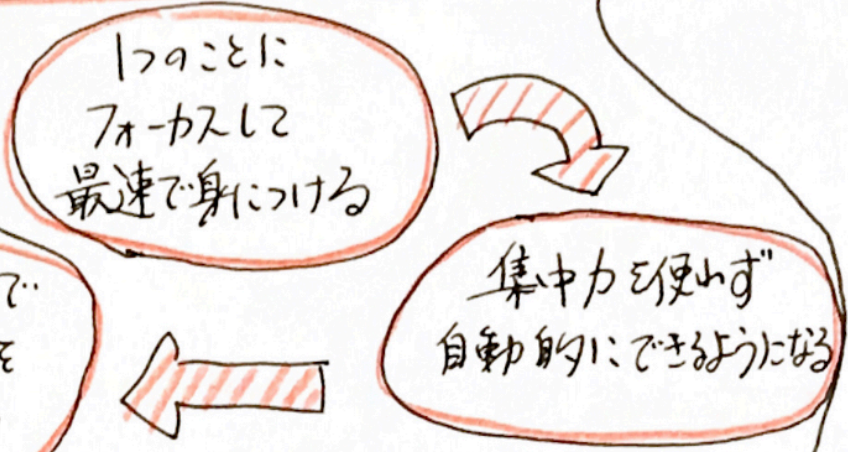 1つのことに
フォーカスして
最速で身につける
集中力を使わず
自動的にできるようになる
で
を